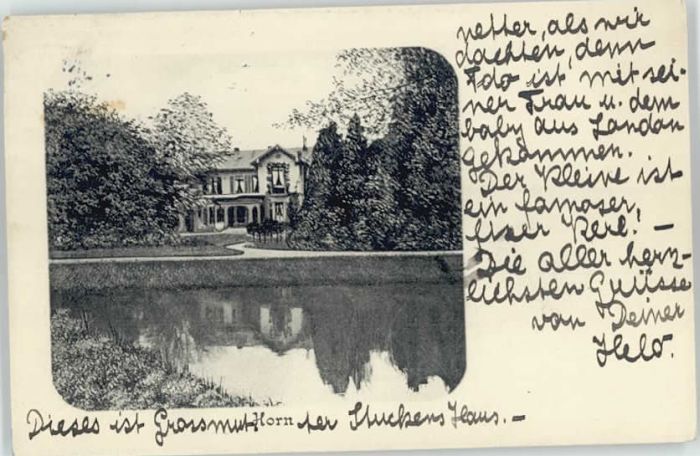 netter, als wir
dachten, denn
Edo ist mit sei-
ner Frau u. dem
baby aus London
gekommen.
Der Kleine ist
ein famoser,
fixer Kerl. —
Die aller herz-
lichsten Grüsse
von Deiner
Helo.
Horn
Dieses ist Grossmutter Stuckens Haus. —